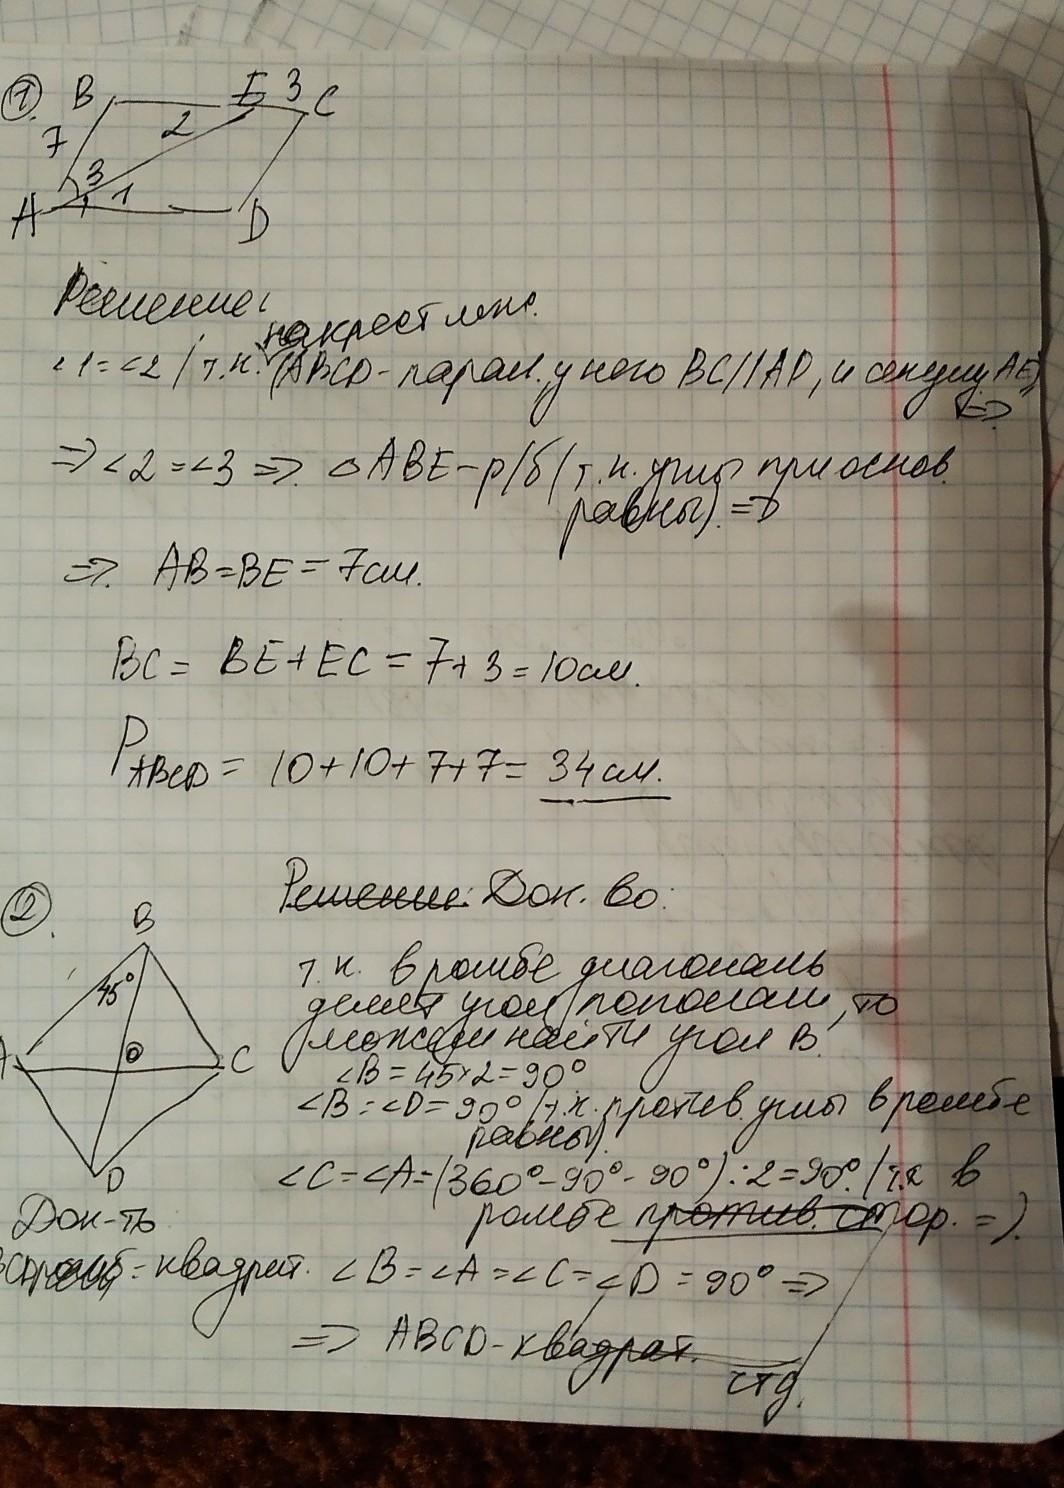 1.
B E 3 C
7 2
3 1
A D
Решение:
накрест леж.
∠1=∠2 (т.к. (ABCD-парал. у него BC//AD, и секущ. AE)
=>
=> ∠2=∠3 => △ABE-р/б (т.к. углы при основ.
равны). =>
=> AB=BE=7см.
BC= BE+EC=7+3=10см.
P ABCD = 10+10+7+7= 34см.
2.
Решение: Док. во:
B
45°
A O C
D
т.к. в ромбе диагональ
делет угол пополам, то
можем найти угол B.
∠B=45×2=90°
∠B=∠D=90° (т.к. против. углы в ромбе
равны).
∠C=∠A=(360°-90°-90°):2=90°. (т.к в
ромбе против. стор. =).
Док-ть
квадрат. ∠B=∠A=∠C=∠D=90° =>
=> ABCD-квадрат.
стд.